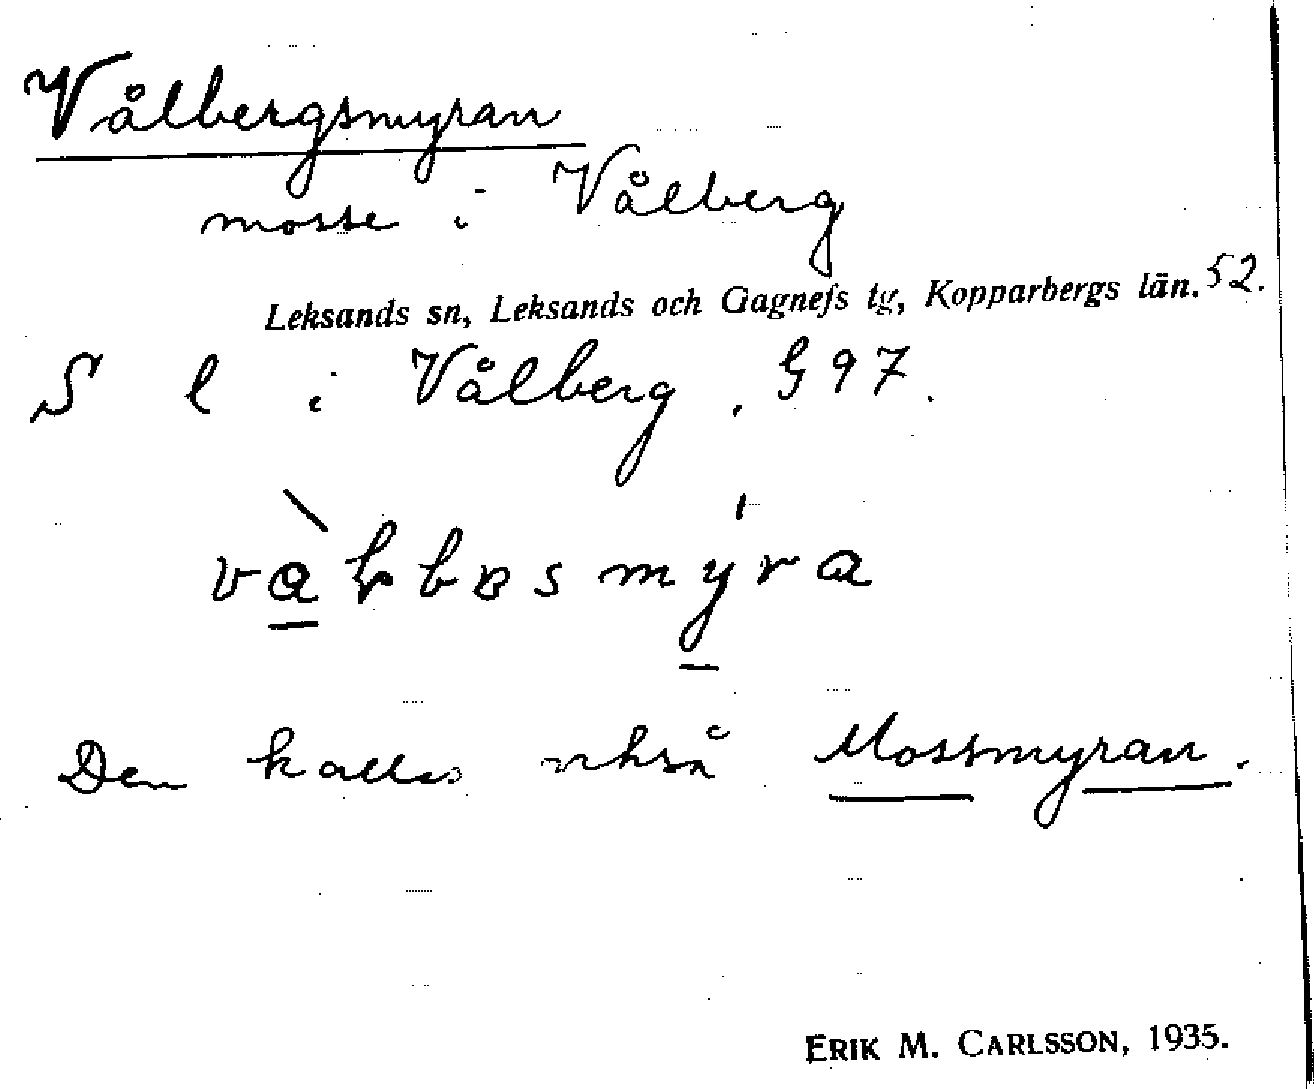 Vålbergsmyran
mosse i Vålberg
Leksands sn, Leksands och Gagnefs tg, Kopparbergs län. 52.
S l i Vålberg. G 97.
Den kallas också Mossmyran.
ERIK M. CARLSSON, 1935.